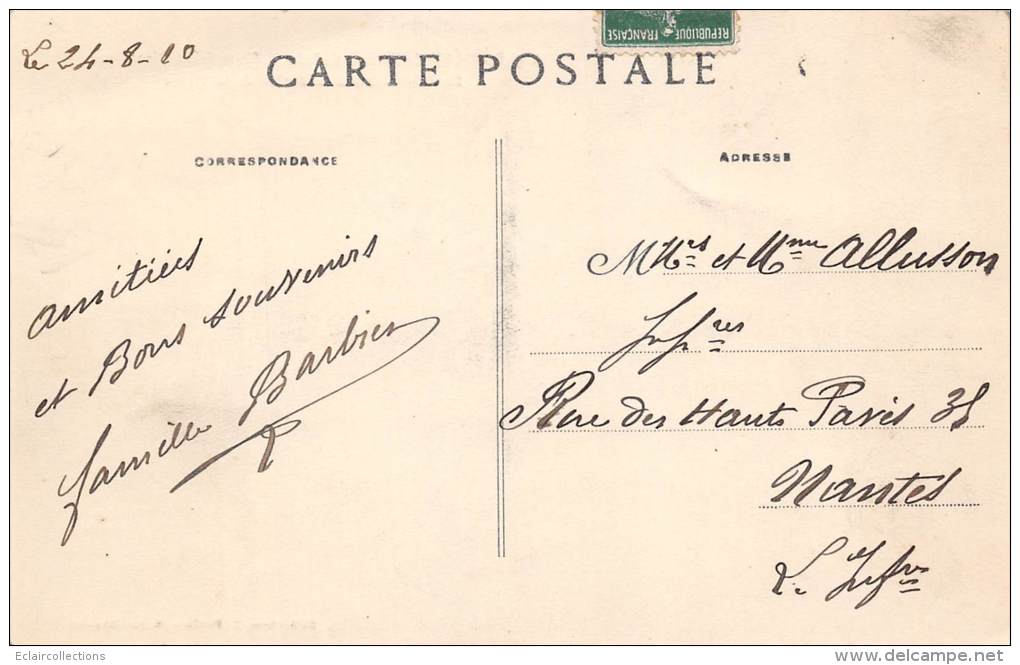 Le 24-8-10
REPUBLIQUE FRANÇAISE
CARTE POSTALE
CORRESPONDANCE
ADRESSE
amitiées
et Bons souvenirs
famille Barbier
Mrs et Mme Allusson
Rue des Hauts Pavés 35
Nantes
L. Infre
Eclaircollections
www.delcampe.net